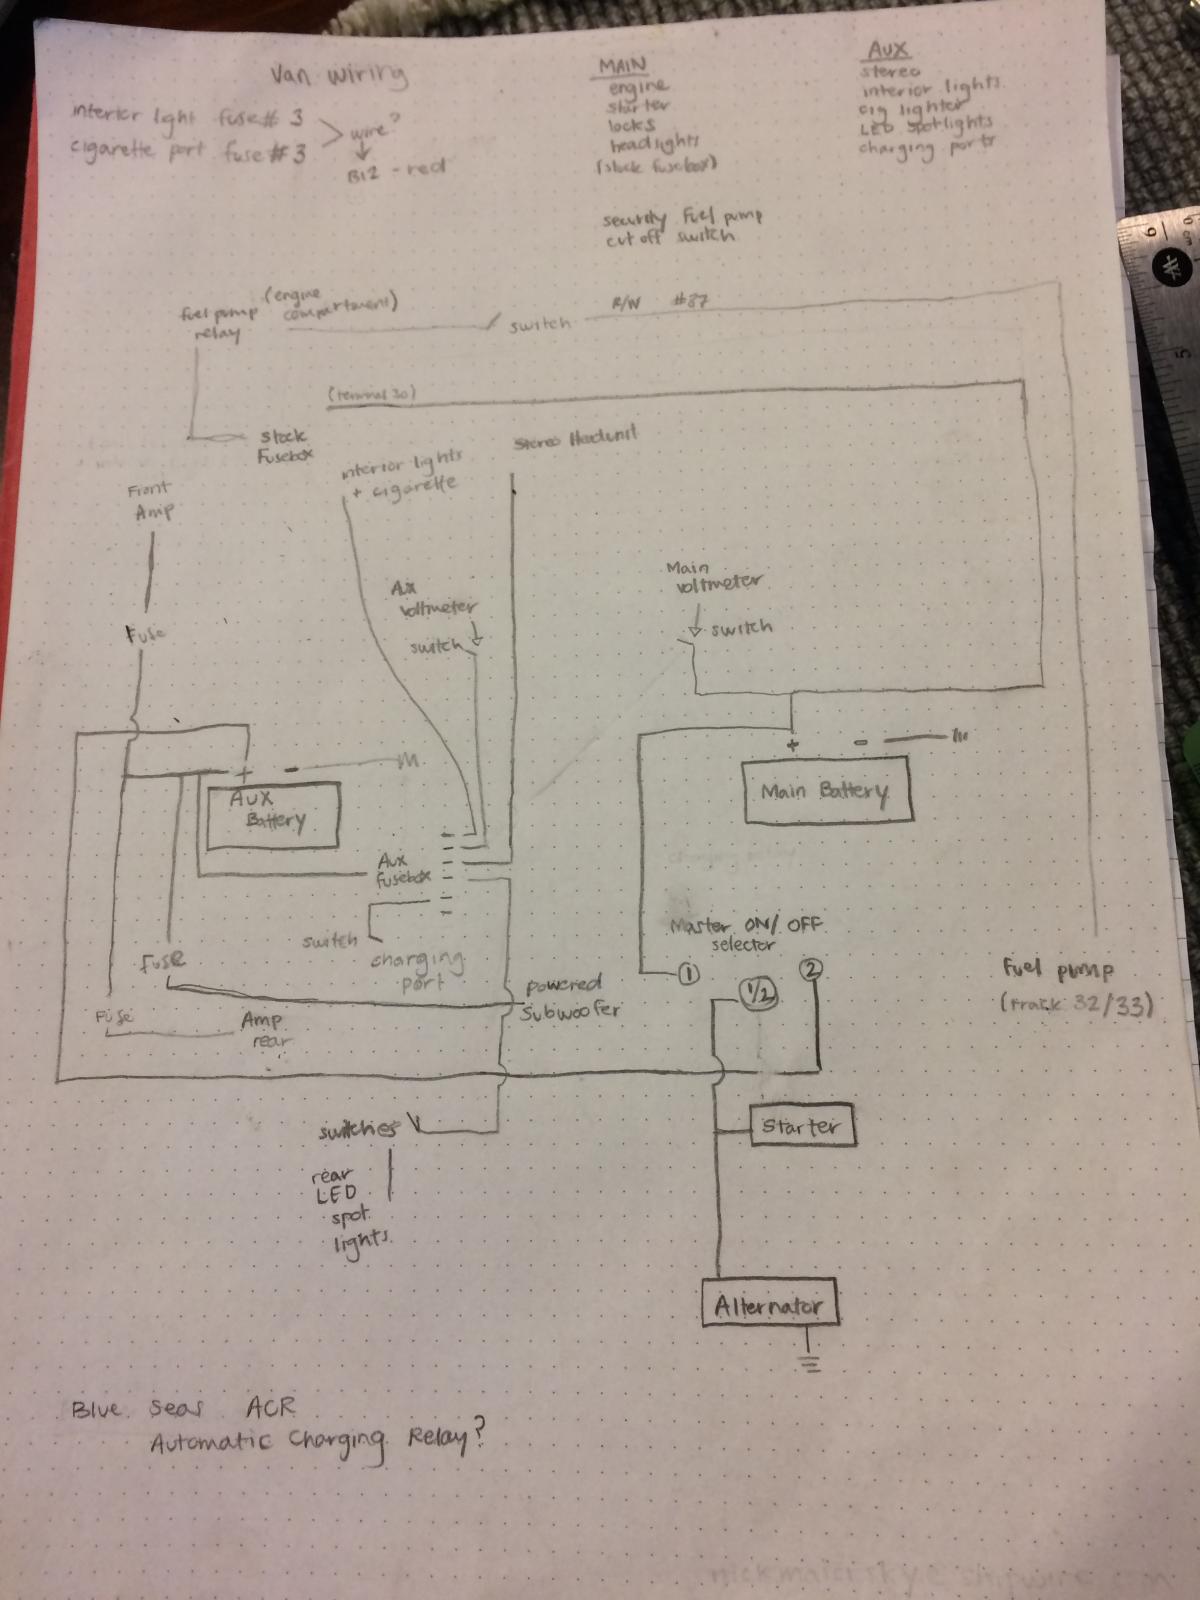 Van wiring
interior light fuse# 3
cigarette port fuse#3
wire?
B12 - red
MAIN
engine
starter
locks
headlights
(stock fusebox)
security fuel pump
cut off switch
AUX
stereo
interior lights
cig lighter
LED spotlights
charging ports
fuel pump
relay
(engine
compartment)
switch
R/W #87
(terminal 30)
stock
Fusebox
interior lights
+ cigarette
Stereo Headunit
Front
Amp
Fuse
Aux
voltmeter
switch
Main
voltmeter
switch
+ -
AUX
Battery
+ -
Main Battery
Aux
fusebox
switch
charging
port
Master ON/OFF
selector
1
1/2
2
Fuse
powered
subwoofer
Fuse
Amp
rear
Fuel pump
(track 32/33)
switches
rear
LED
spot
lights
Starter
Alternator
Blue Seas ACR
Automatic Charging Relay?
6
5